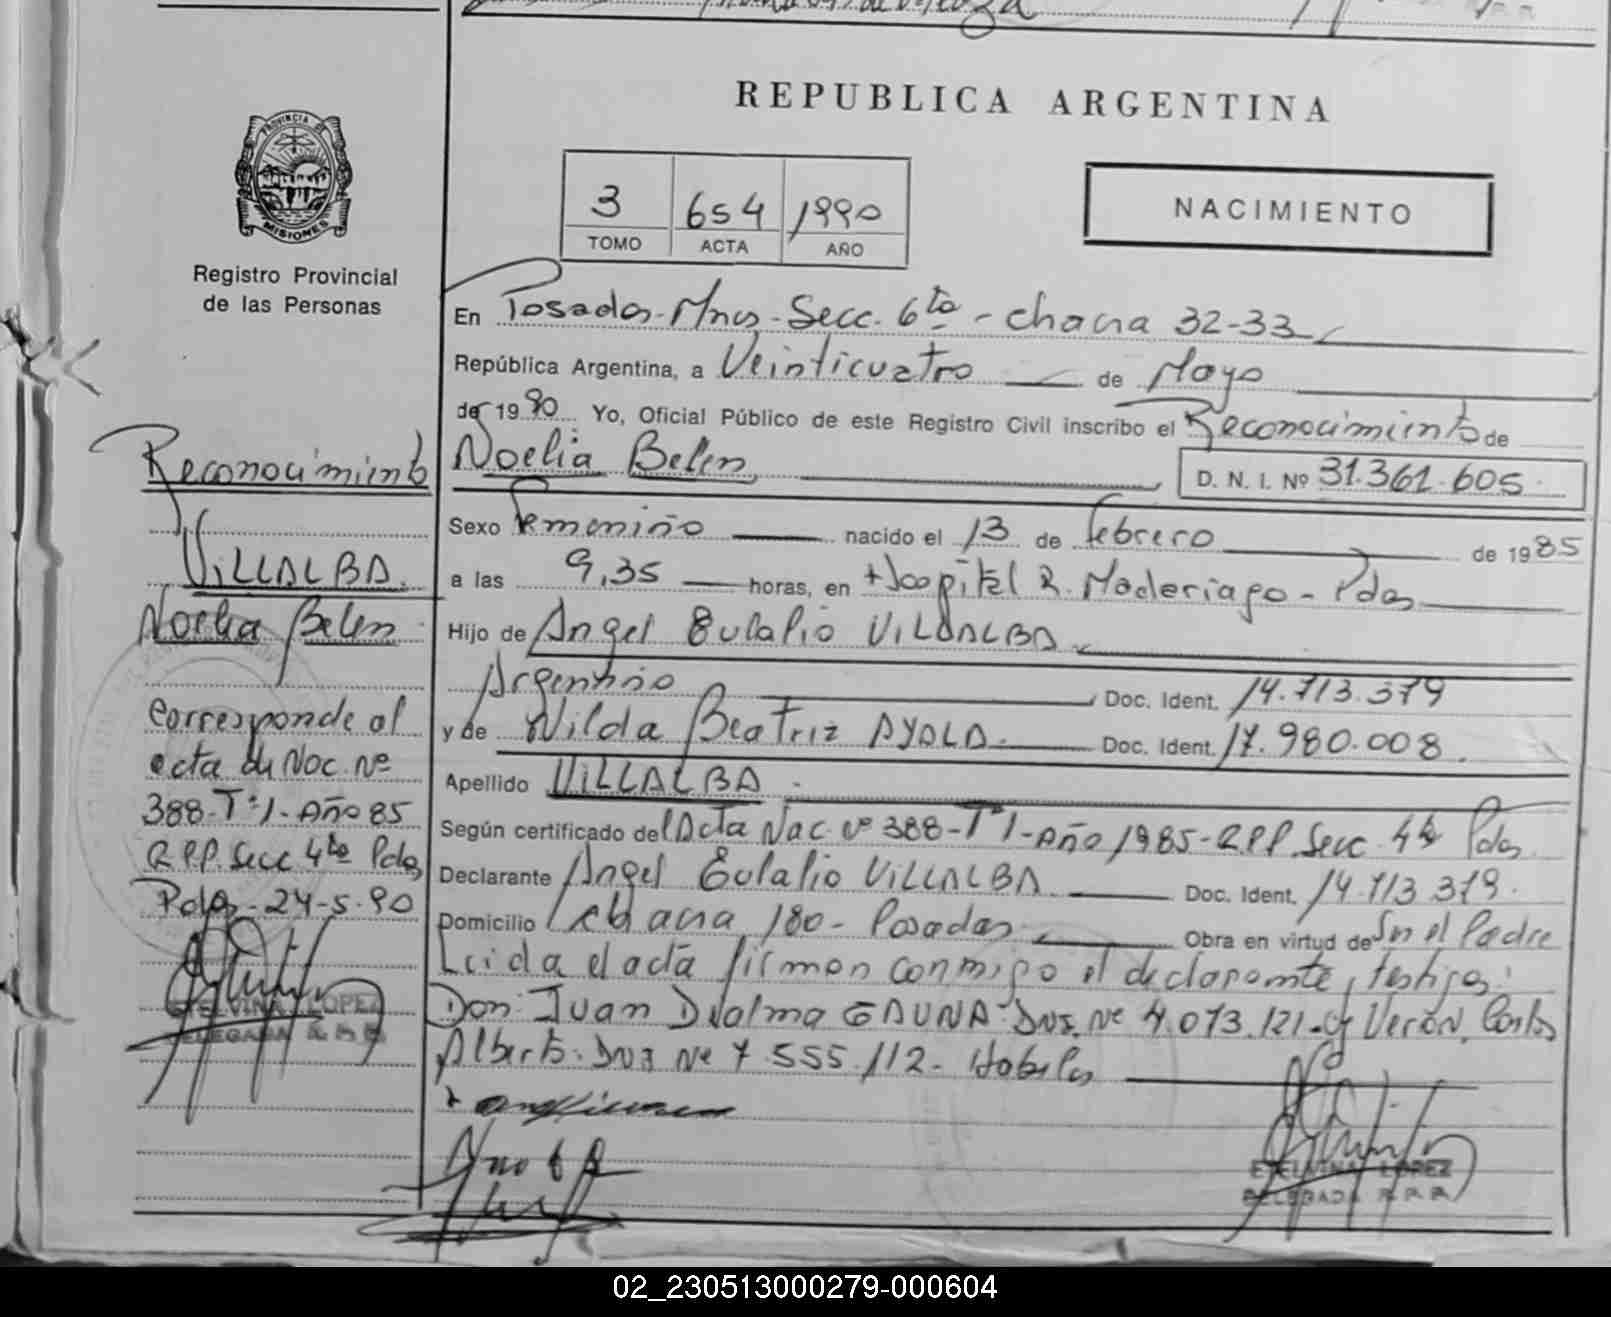 REPUBLICA ARGENTINA
PROVINCIA DE
MISIONES
Registro Provincial
de las Personas
3 654 1990
TOMO ACTA AÑO
NACIMIENTO
En Posadas-Mnes-Secc. 6ta - chacra 32-33
República Argentina, a Veinticuatro de Mayo
de 1990 Yo, Oficial Público de este Registro Civil inscribo el Reconocimiento de
Noelia Belen D. N. I. Nº 31.361.605
Sexo Femenino nacido el 13 de Febrero de 1985
a las 9,35 horas, en Hospital R. Madariaga - Pdas
Hijo de Angel Eulalio VILLALBA
Argentino Doc. Ident. 14.713.379
y de Nilda Beatriz AYALA Doc. Ident. 17.980.008.
Apellido VILLALBA
Según certificado del Acta Nac. Nº 388-Tº1-Año 1985-R.P.P. Secc. 4ta Pdas
Declarante Angel Eulalio VILLALBA Doc. Ident. 14.713.379.
Domicilio chacra 180 - Posadas Obra en virtud de Ser el Padre
Leida el acta firman conmigo el declarante, testigos:
Don: Juan Dualma GAUNA-DNI. Nº 4.073.121-y Verón, Carlos
Alberto. DNI Nº 7.555.112- Habiles
ETELVINA LOPEZ
DELEGADA R.P.P.
Reconocimiento
VILLALBA
Noelia Belen
corresponde al
acta de Nac. Nº
388-Tº1-Año 85
R.P.P. Secc 4ta Pdas
Pdas-24-5-90
ETELVINA LOPEZ
DELEGADA R.P.P.
02_230513000279-000604